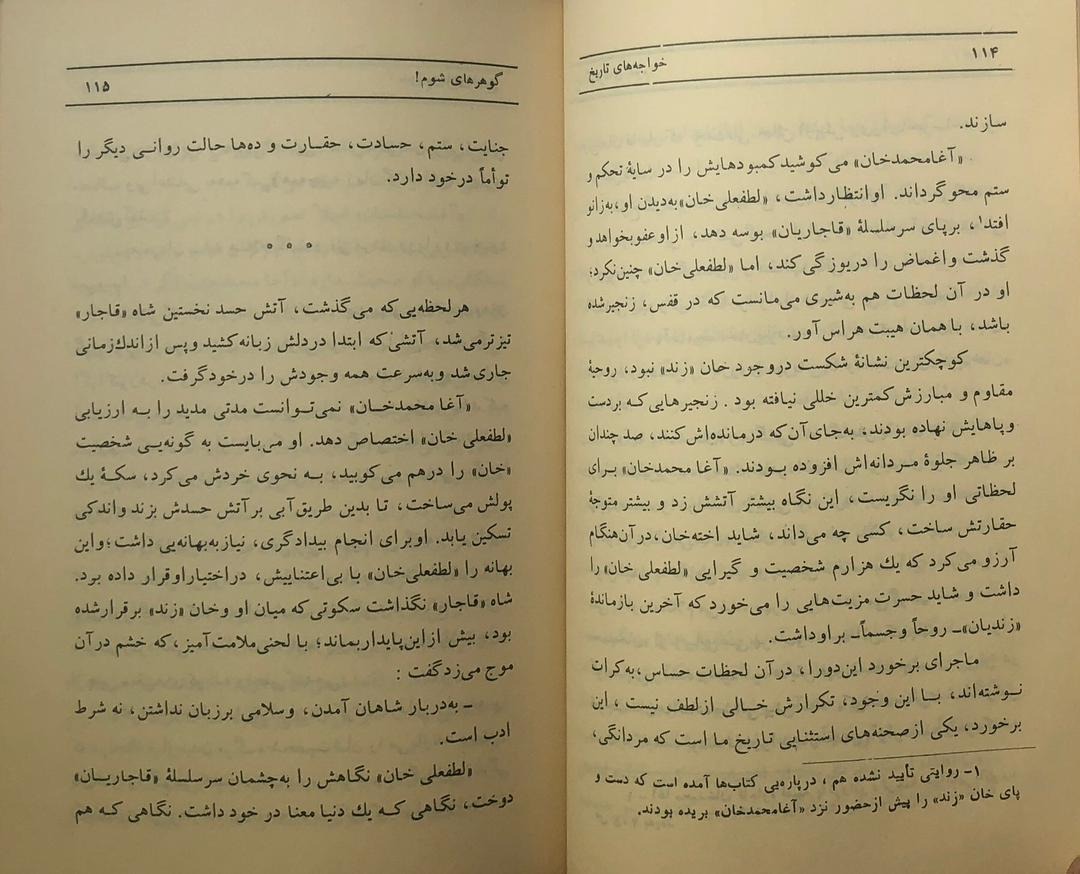 ۱۱۴
خواجه‌های تاریخ
سازند.
«آغامحمدخان» می‌کوشید کمبودهایش را در سایهٔ تحکم و
ستم محو گرداند. او انتظار داشت، «لطفعلی‌خان» به‌دیدن او، به‌زانو
افتد۱، برپای سرسلسلهٔ «قاجاریان» بوسه دهد، از او عفو بخواهد و
گذشت و اغماض را دریوزگی کند، اما «لطفعلی‌خان» چنین نکرد؛
او در آن لحظات هم به‌شیری می‌مانست که در قفس، زنجیر شده
باشد، با همان هیبت هراس‌آور.
کوچکترین نشانهٔ شکست در وجود خان «زند» نبود، روحیهٔ
مقاوم و مبارزش کمترین خللی نیافته بود. زنجیرهایی که بر دست
و پاهایش نهاده بودند، به‌جای آن‌که درمانده‌اش کنند، صد چندان
بر ظاهر جلوهٔ مردانه‌اش افزوده بودند. «آغا محمدخان» برای
لحظاتی او را نگریست، این نگاه بیشتر آتشش زد و بیشتر متوجهٔ
حقارتش ساخت، کسی چه می‌داند، شاید اخته‌خان، در آن هنگام
آرزو می‌کرد که یك هزارم شخصیت و گیرایی «لطفعلی خان» را
داشت و شاید حسرت مزیت‌هایی را می‌خورد که آخرین بازماندهٔ
«زندیان» ـ روحاً و جسماً ـ بر او داشت.
ماجرای برخورد این دو را، در آن لحظات حساس، به‌کرات
نوشته‌اند، بـا این وجود، تکرارش خالی از لطف نیست، این
برخورد، یکی از صحنه‌های استثنایی تاریخ ما است که مردانگی،
۱- روایتی تأیید نشده هم، در پاره‌یی کتاب‌ها آمده است که دست و
پای خان «زند» را پیش از حضور نزد «آغامحمدخان» بریده بودند.
گوهرهای شوم!
۱۱۵
جنایت، ستم، حسادت، حقـارت و ده‌ها حالت روانـی دیگر را
توأماً در خود دارد.
هر لحظه‌یی که می‌گذشت، آتش حسد نخستین شاه «قاجار»
تیزتر می‌شد، آتشی که ابتدا در دلش زبانه کشید و پس از اندك زمانی
جاری شد و به‌سرعت همه وجودش را در خود گرفت.
«آغا محمدخـان» نمی‌تـوانست مدتی مدید را بـه ارزیابی
«لطفعلی خان» اختصاص دهد. او می‌بایست به گونه‌یـی شخصیت
«خان» را درهم می‌کوبید، بـه نحوی خردش می‌کرد، سکـهٔ یك
پولش می‌ساخت، تا بدین طریق آبی بر آتش حسدش بزند و اندکی
تسکین یابد. او برای انجام بیدادگری، نیاز به‌بهانه‌یی داشت؛ و این
بهانه را «لطفعلی‌خان» با بی‌اعتناییش، در اختیار او قرار داده برد.
شاه «قاجار» نگذاشت سکوتی که میان او و خان «زند» برقرار شده
بود، بیش از این پایدار بماند؛ با لحنی ملامت‌آمیز، که خشم در آن
موج می‌زد گفت :
ـ به‌دربار شاهان آمدن، و سلامی بر زبان نداشتن، نه شرط
ادب است.
«لطفعلی خان» نگاهش را به‌چشمان سرسلسلهٔ «قاجاریـان»
دوخت، نگاهی کـه یك دنیا معنا در خود داشت. نگاهی کـه هم